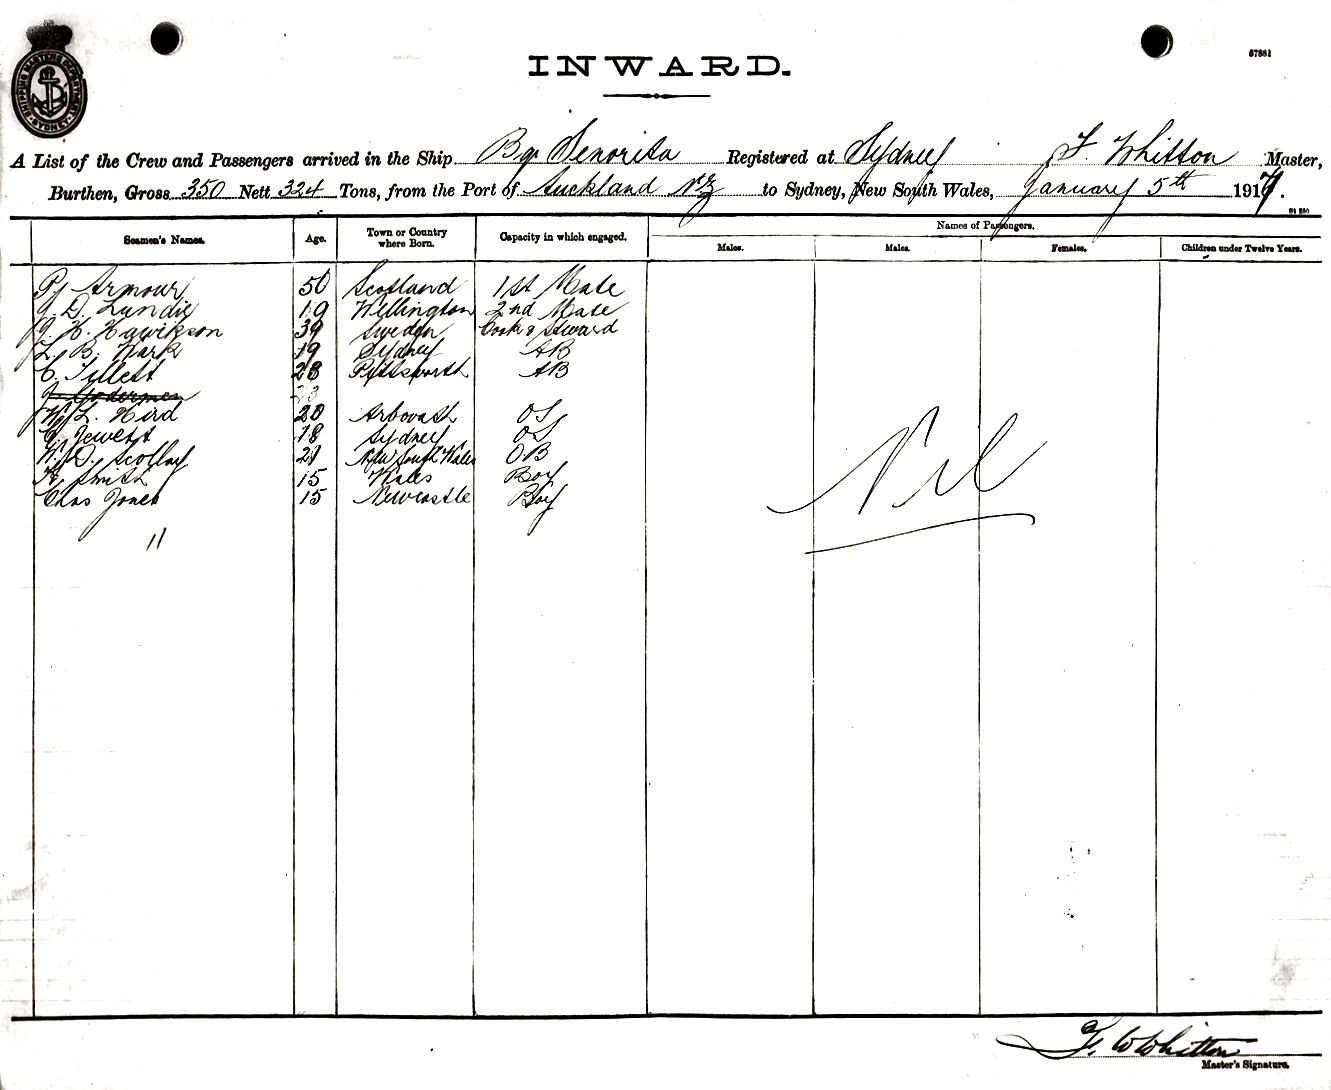 SHIPPING MASTER'S DEPARTMENT SYDNEY
57881
INWARD.
A List of the Crew and Passengers arrived in the Ship Bq. Senorita Registered at Sydney F. Whitton Master,
Burthen, Gross 350 Nett 324 Tons, from the Port of Auckland NZ to Sydney, New South Wales, January 5th 1917.
Seamen's Names. Age. Town or Country where Born. Capacity in which engaged. Names of Passengers.
Males. Males. Females. Children under Twelve Years.
P. Armour 50 Scotland 1st Mate
D. Lundie 19 Wellington 2nd Mate
H. Hawikson 39 Sweden Cook & Steward
L. B. Wark 19 Sydney AB
C. Tillett 28 Pittsworth AB
23
W. L. Hird 20 Arbovash OS
C. Jewett 18 Sydney OS
W. D. Scollay 21 New South Wales OB
H. Smith 15 Wales Boy
Chas Jones 15 Newcastle Boy
Nil
11
F. W Whitton
Master's Signature.